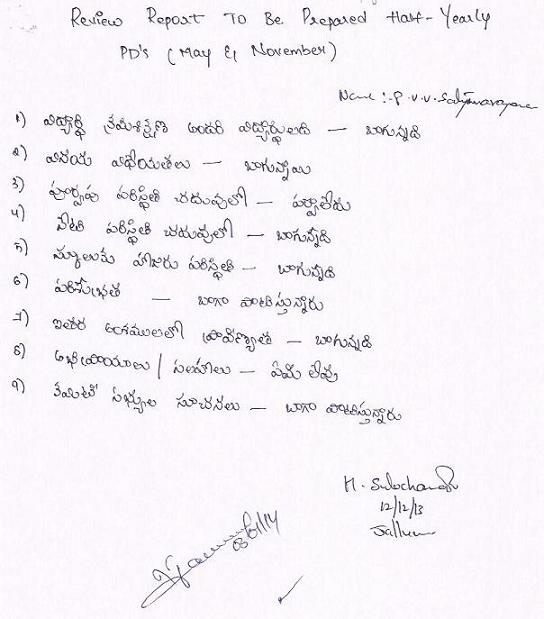 Review Report To Be Prepared Half-Yearly
PD's (May & November)
Name :- P.V.V. Satyanarayana
1) విద్యార్థి క్రమశిక్షణ అందరి విద్యార్థులది — బాగున్నది
2) వినయ విధేయతలు — బాగున్నాయి
3) పూర్వపు పరిస్థితి చదువులో — పర్వాలేదు
4) నేటి పరిస్థితి చదువులో — బాగున్నది
5) స్కూలుకు హాజరు పరిస్థితి — బాగున్నది
6) పరిశుభ్రత — బాగా పాటిస్తున్నారు
7) ఇతర అంశములలో ప్రావీణ్యత — బాగున్నది
8) అభిప్రాయాలు / సలహాలు — ఏమి లేవు
9) కమిటీ సభ్యుల సూచనలు — బాగా పాటిస్తున్నారు
12/12/13